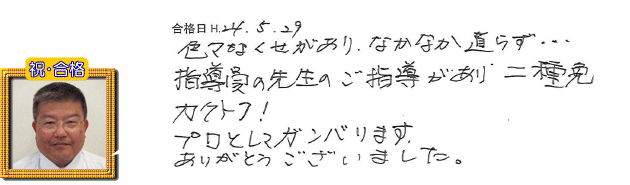 合格日 H.24.5.29
色々なくせがあり、なかなか直らず…
祝・合格
指導員の先生のご指導があり 二種免
カクトク!
プロとしてガンバリます。
ありがとうございました。